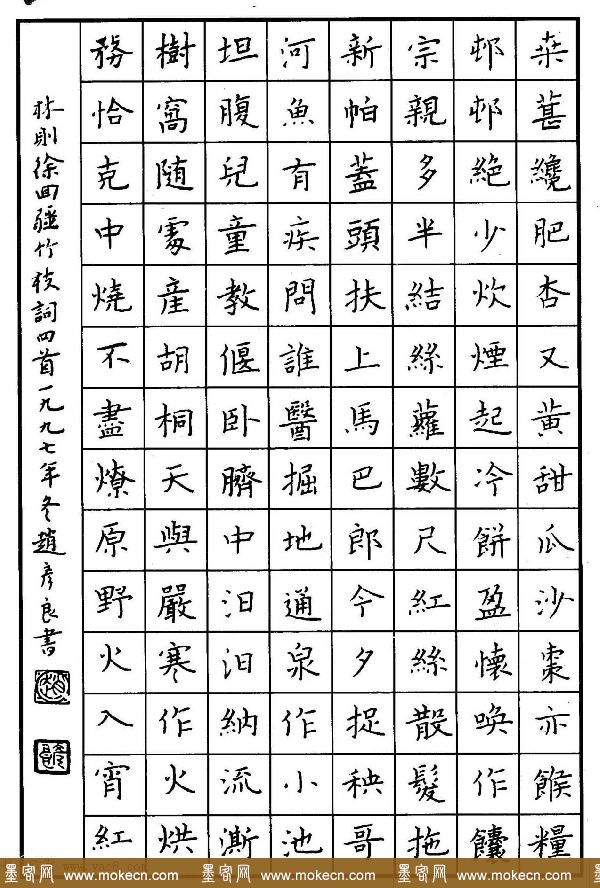 桒葚纔肥杏又黃甜瓜沙棗亦餱糧
邨邨絕少炊煙起冷餅盈懷喚作饢
宗親多半結絲蘿數尺紅絲散髮拖
新帕蓋頭扶上馬巴郎今夕捉秧哥
河魚有疾問誰醫掘地通泉作小池
坦腹兒童教偃卧臍中汩汩納流澌
樹窩随處產胡桐天與嚴寒作火烘
務恰克中燒不盡燎原野火入宵紅
林則徐回疆竹枝詞四首一九九七年冬趙彥良書
墨客网 www.mokecn.com 墨客网 www.mokecn.com 墨客网 www.mokecn.com 墨客网 www.mokecn.com